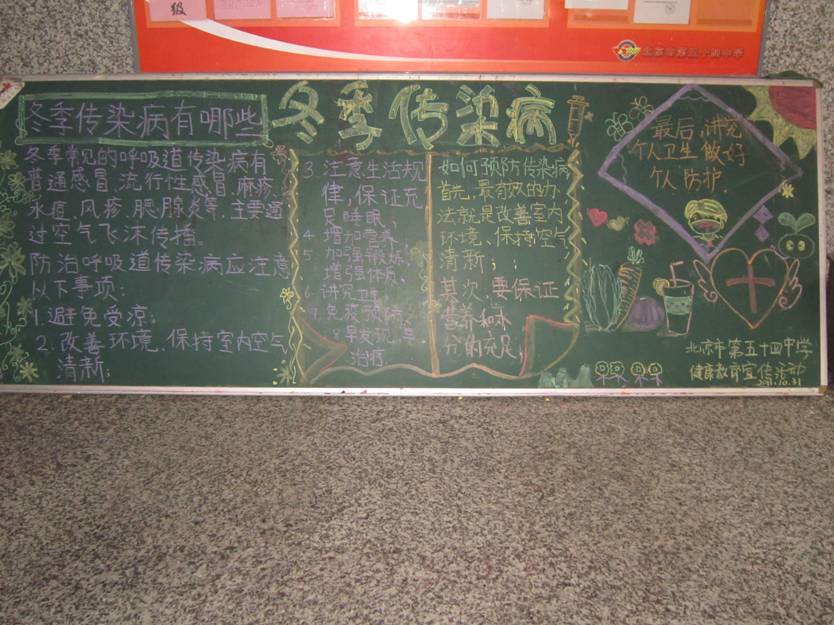 级
北京市第五十四中学
冬季传染病
冬季传染病有哪些
冬季常见的呼吸道传染病有
普通感冒、流行性感冒、麻疹、
水痘、风疹、腮腺炎等,主要通
过空气飞沫传播。
防治呼吸道传染病应注意
以下事项:
1.避免受凉:
2.改善环境、保持室内空气
清新:
3 注意生活规
律,保证充
足睡眠、
4 增加营养、
5 加强锻炼、
增强体质、
6 讲究卫生
7 免疫预防
早发现,早
治疗
如何预防传染病
首先,最有效的方
法就是改善室内
环境、保持空气
清新;
其次,要保证
营养和水
分的充足,
最后,讲究
个人卫生做好
个人防护.
北京市第五十四中学
健康教育宣传活动
2011.10.31